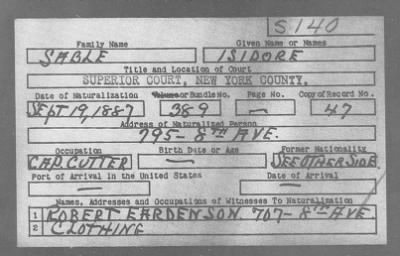 S140
Family Name Given Name or Names
SABLE ISIDORE
Title and Location of Court
SUPERIOR COURT, NEW YORK COUNTY,
Date of Naturalization Volume or Bundle No. Page No. Copy of Record No.
SEPT 19, 1887 389 — 47
Address of Naturalized Person
795 - 8TH AVE.
Occupation Birth Date or Age Former Nationality
CAP. CUTTER — SEE OTHER SIDE.
Port of Arrival in the United States Date of Arrival
— —
Names, Addresses and Occupations of Witnesses To Naturalization
1 ROBERT EARDENSON. 707 - 8TH AVE
2 CLOTHING